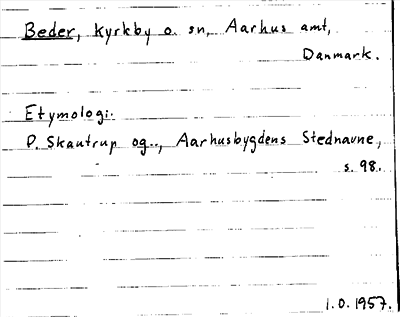 Beder, kyrkby o. sn, Aarhus amt,
Danmark.
Etymologi:
P. Skautrup og.., Aarhusbygdens Stednavne,
s. 98.
1.0.1957.